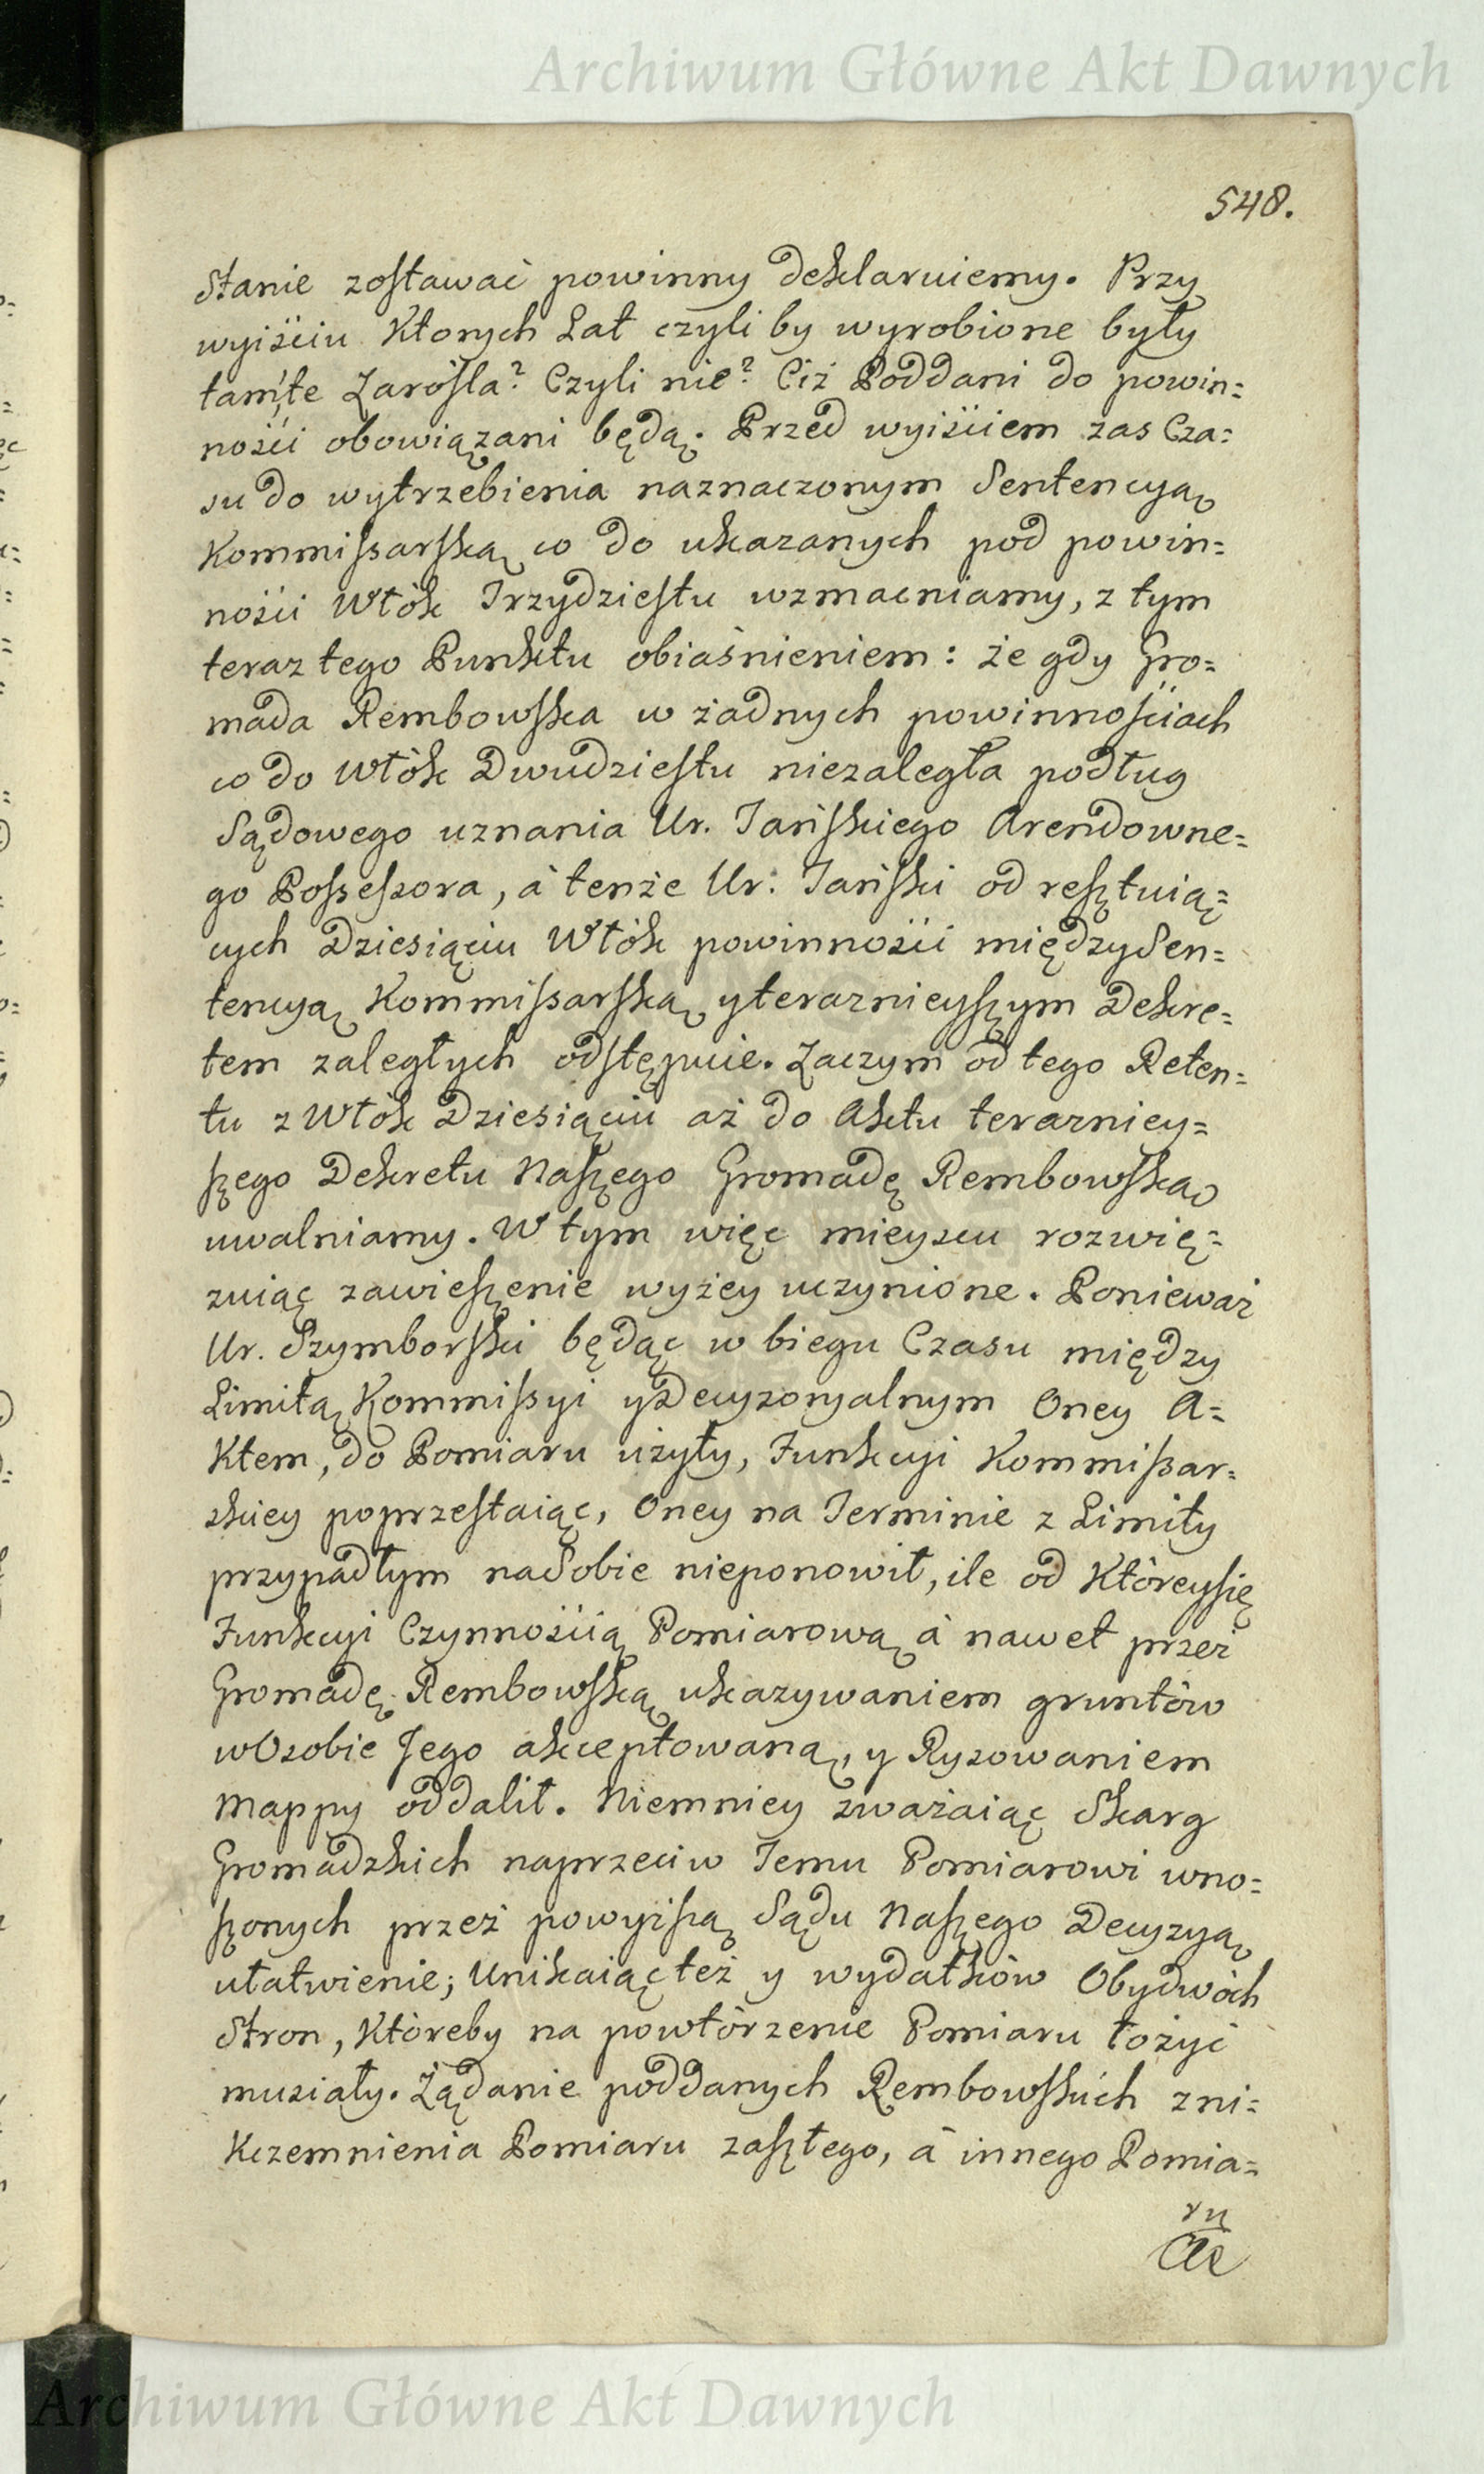 Archiwum Główne Akt Dawnych
548.
Stanie zostawać powinny deklaruiemy. Przy
wyiściu Ktorych Lat czyli by wyrobione były
tamte Zarośla? Czyli nie? Ciż Poddani do powin=
ności obowiązani będą. Przed wyiściem zas Cza=
su do wytrzebienia naznaczonym Sentencyą
Kommissarską co do ukazanych pod powin=
ności Włók Trzydziestu wzmacniamy, z tym
teraz tego Punktu obiaśnieniem: że gdy Gro=
mada Rembowska w żadnych powinnościach
co do Włók Dwudziestu niezaległa podług
Sądowego uznania Ur. Jańskiego Arendowne=
go Possessora, á tenże Ur. Jański od resztuią=
cych Dziesiąciu Włók powinności między Sen=
tencyą Kommissarską y teraznieyszym Dekre=
tem zaległych odstępuie. Zaczym od tego Reten=
tu z Włók Dziesiąciu aż do Aktu terazniey=
szego Dekretu Naszego Gromadę Rembowską
uwalniamy. W tym więc mieyscu rozwię=
zuiąc zawieszenie wyżey uczynione. Ponieważ
Ur. Szymborski będąc w biegu Czasu między
Limitą Kommissyi y Decyzoryalnym Oney A=
Ktem, do Pomiaru użyty, Funkcyi Kommissar=
skiey poprzestaiąc, Oney na Terminie z Limity
przypadłym na Sobie nieponowił, ile od Któreysię
Funkcyi Czynnością Pomiarową á nawet przez
Gromadę Rembowską ukazywaniem gruntów
w Osobie Jego akceptowaną, y Rysowaniem
Mappy oddalił. Niemniey zważaiąc Skarg
Gromadzkich naprzeciw Temu Pomiarowi wno=
szonych przez powyższą Sądu Naszego Decyzyą
ułatwienie; Unikaiąc też y wydatków Obydwóch
Stron, Któreby na powtórzenie Pomiaru łożyć
musiały. Żądanie poddanych Rembowskich zni=
Kczemnienia Pomiaru zaszłego, á innego Pomia=
ru
Archiwum Główne Akt Dawnych